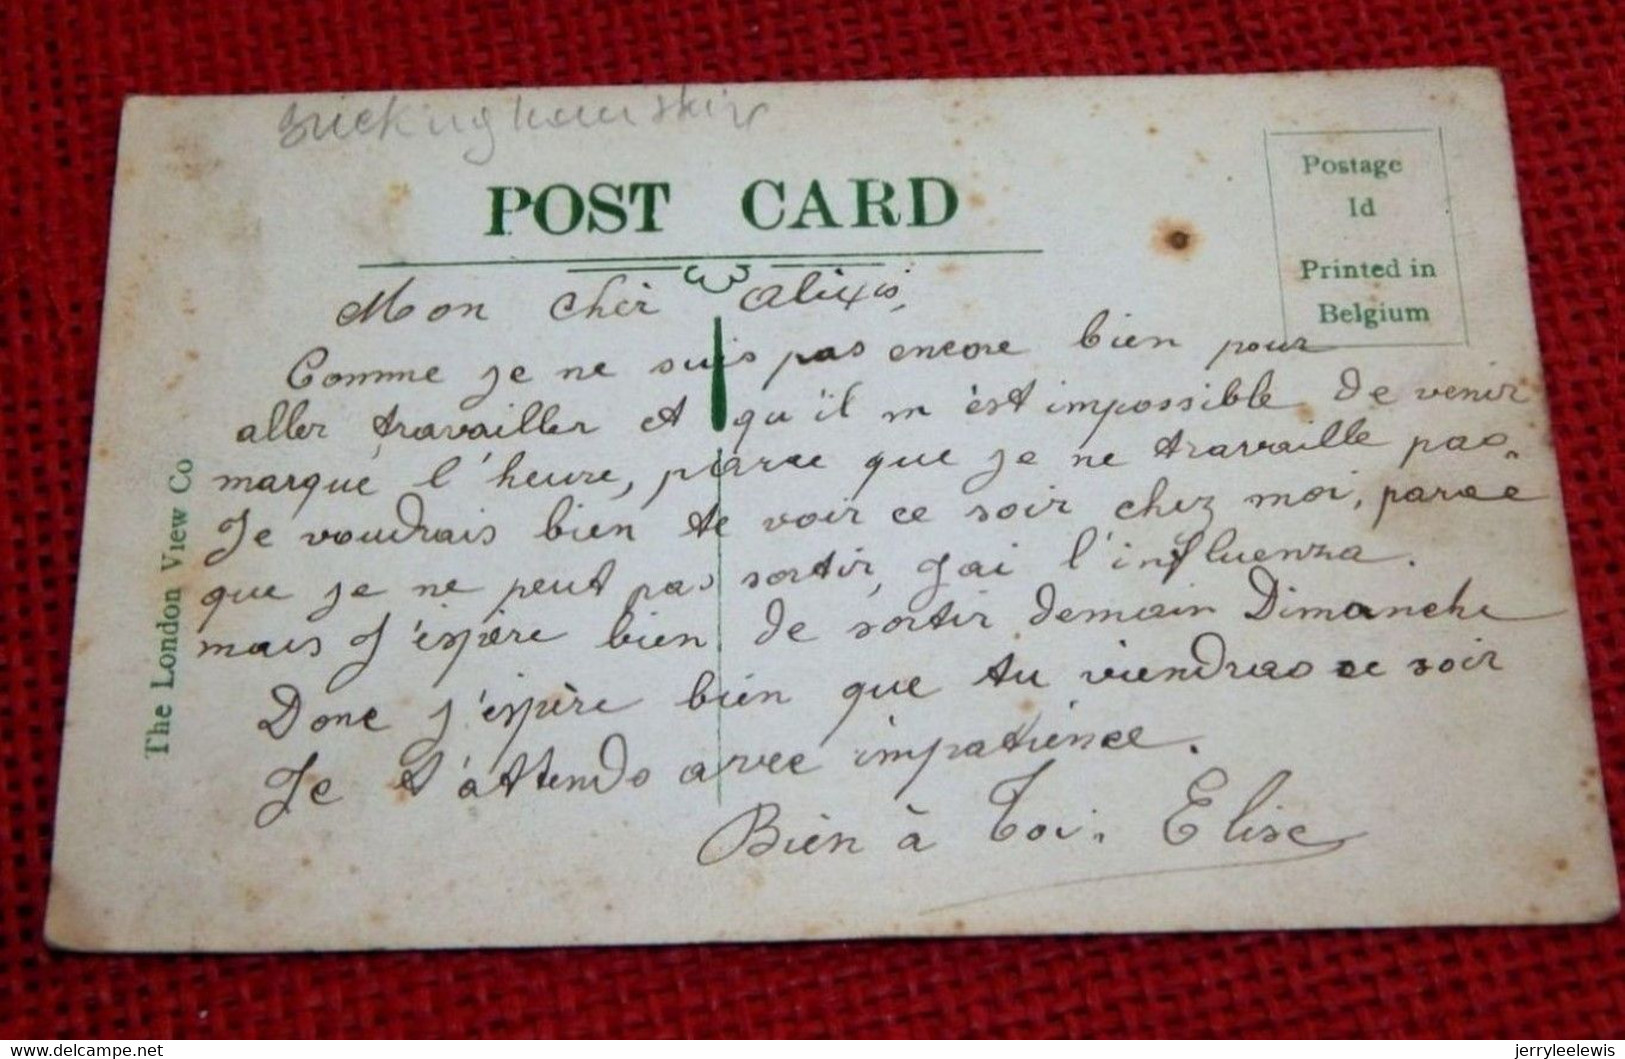 Buckinghamshire
POST CARD
Postage
1d
Printed in
Belgium
The London View Co
Mon cher Alixis,
Comme je ne suis pas encore bien pour
aller travailler et qu'il m'est impossible de venir
marqué l'heure, parce que je ne travaille pas.
Je voudrais bien te voir ce soir chez moi, parce
que je ne peut pas sortir, j'ai l'influenza.
mais j'espère bien de sortir demain Dimanche
Donc j'espère bien que tu viendras ce soir
Je t'attends avec impatience.
Bien à toi. Elise
delcampe.net
jerryleelewis